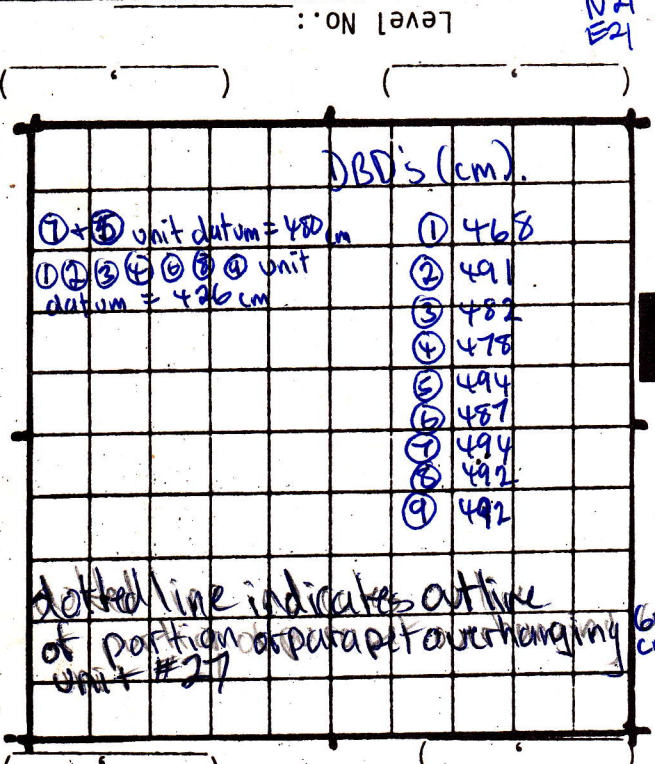 N 21
E21
Level No.:
DBD's (cm).
⑦ + ⑤ unit datum = 480 cm
① ② ③ ④ ⑥ ⑧ ⑨ unit
datum = 426 cm
① 468
② 491
③ 482
④ 478
⑤ 494
⑥ 487
⑦ 494
⑧ 492
⑨ 492
dotted line indicates outline
of portion of parapet overhanging
unit #27